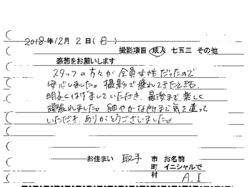 2018年12月2日(日)
撮影項目 成人 七五三 その他
感想をお願いします
スタッフの方々が全員女性だったので
安心しました。撮影で疲れてきたときも
明るくはげましていただき、最後まで楽しく
頑張れました。細やかな所まで気を遣って
いただき、ありがとうございました。
お住まい 取手 市 町 村 お名前 イニシャルで A.I